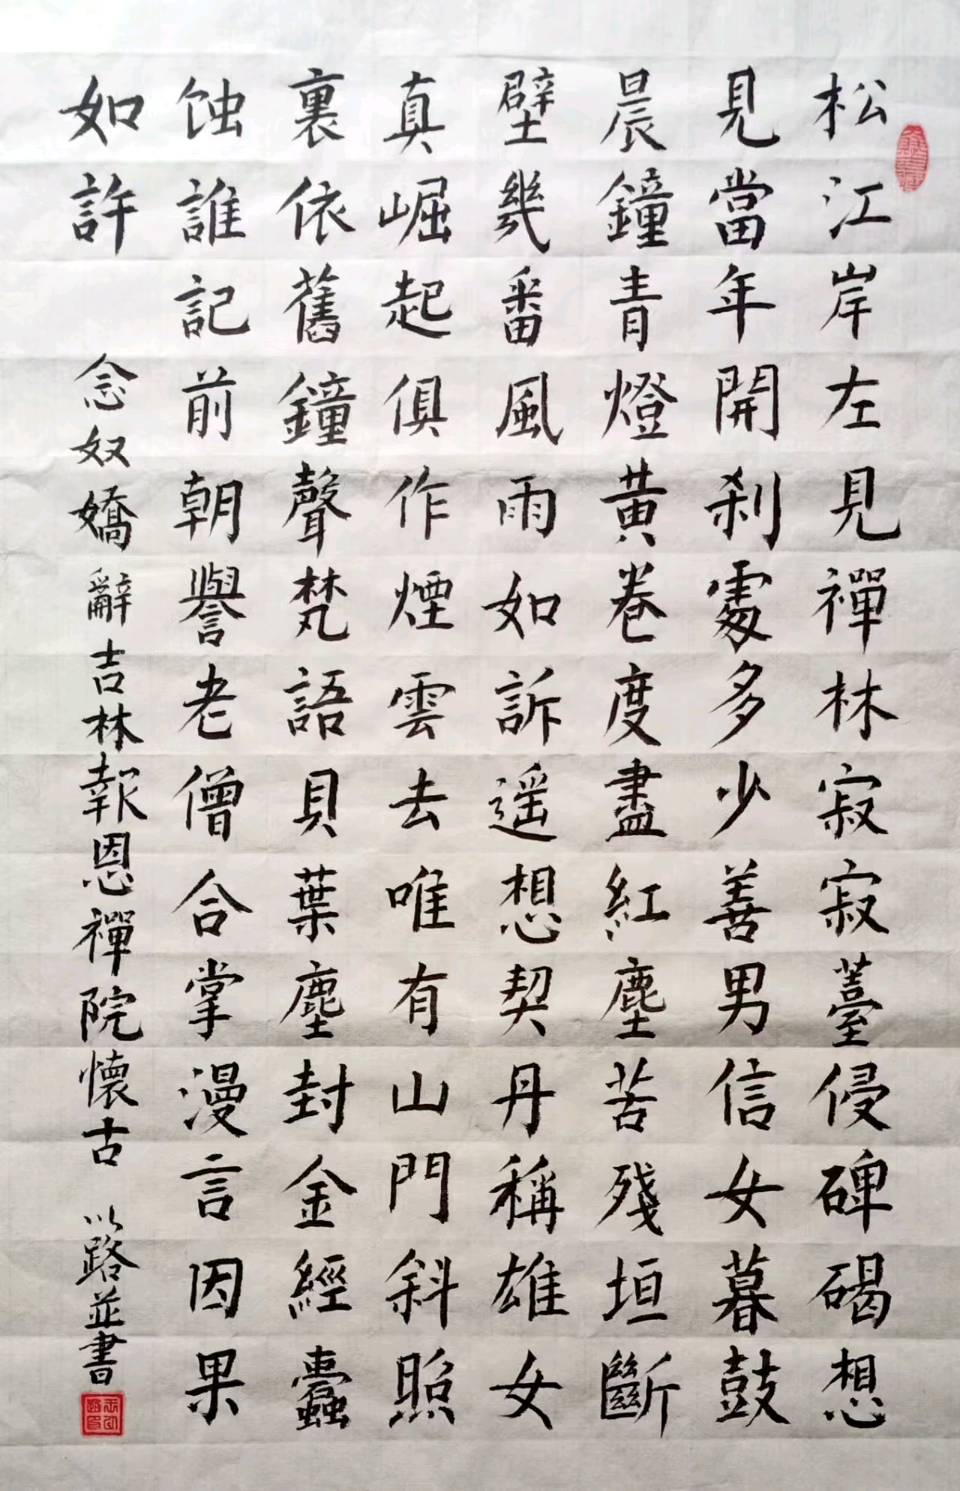 松江岸左見禪林寂寂薹侵碑碣想
見當年開刹處多少善男信女暮鼓
晨鐘青燈黃卷度盡紅塵苦殘垣斷
壁幾番風雨如訴遥想契丹稱雄女
真崛起俱作煙雲去唯有山門斜照
裏依舊鐘聲梵語貝葉塵封金經蠹
蚀誰記前朝譽老僧合掌漫言因果
如許
念奴嬌辭吉林報恩禪院懷古 以路並書